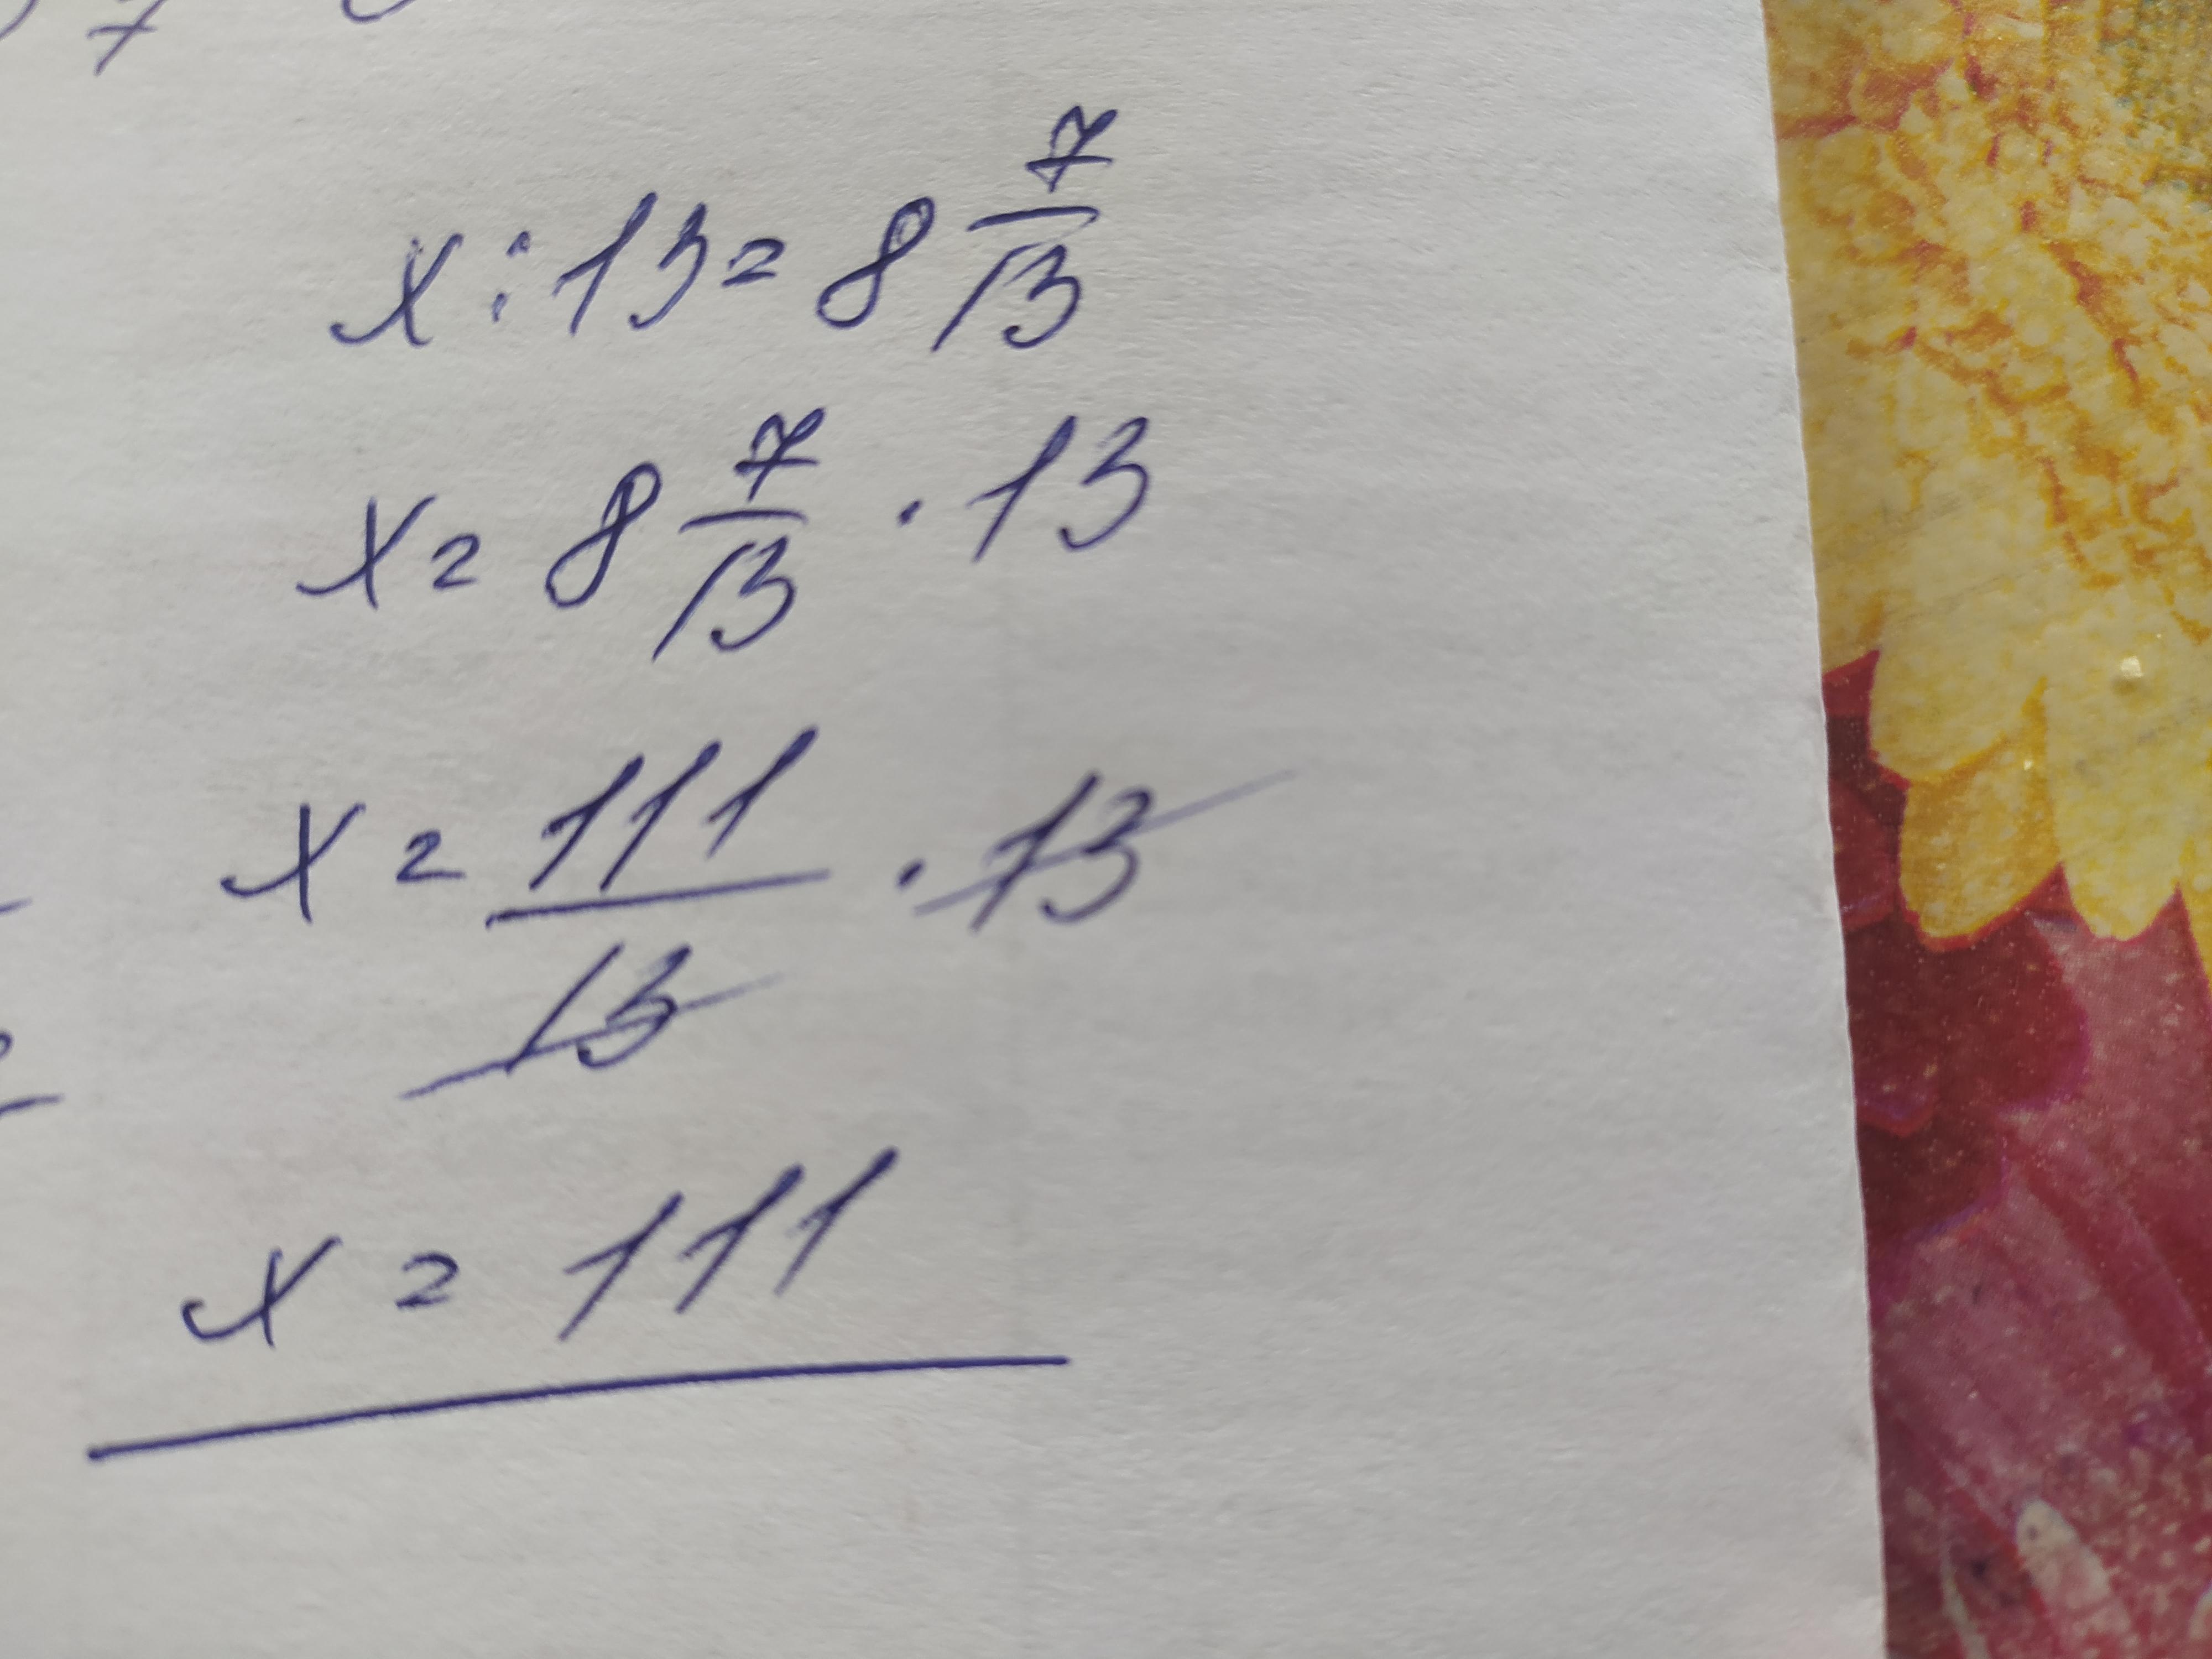 7
x : 13 = 8 7/13
x = 8 7/13 · 13
x = 111/13 · 13
x = 111